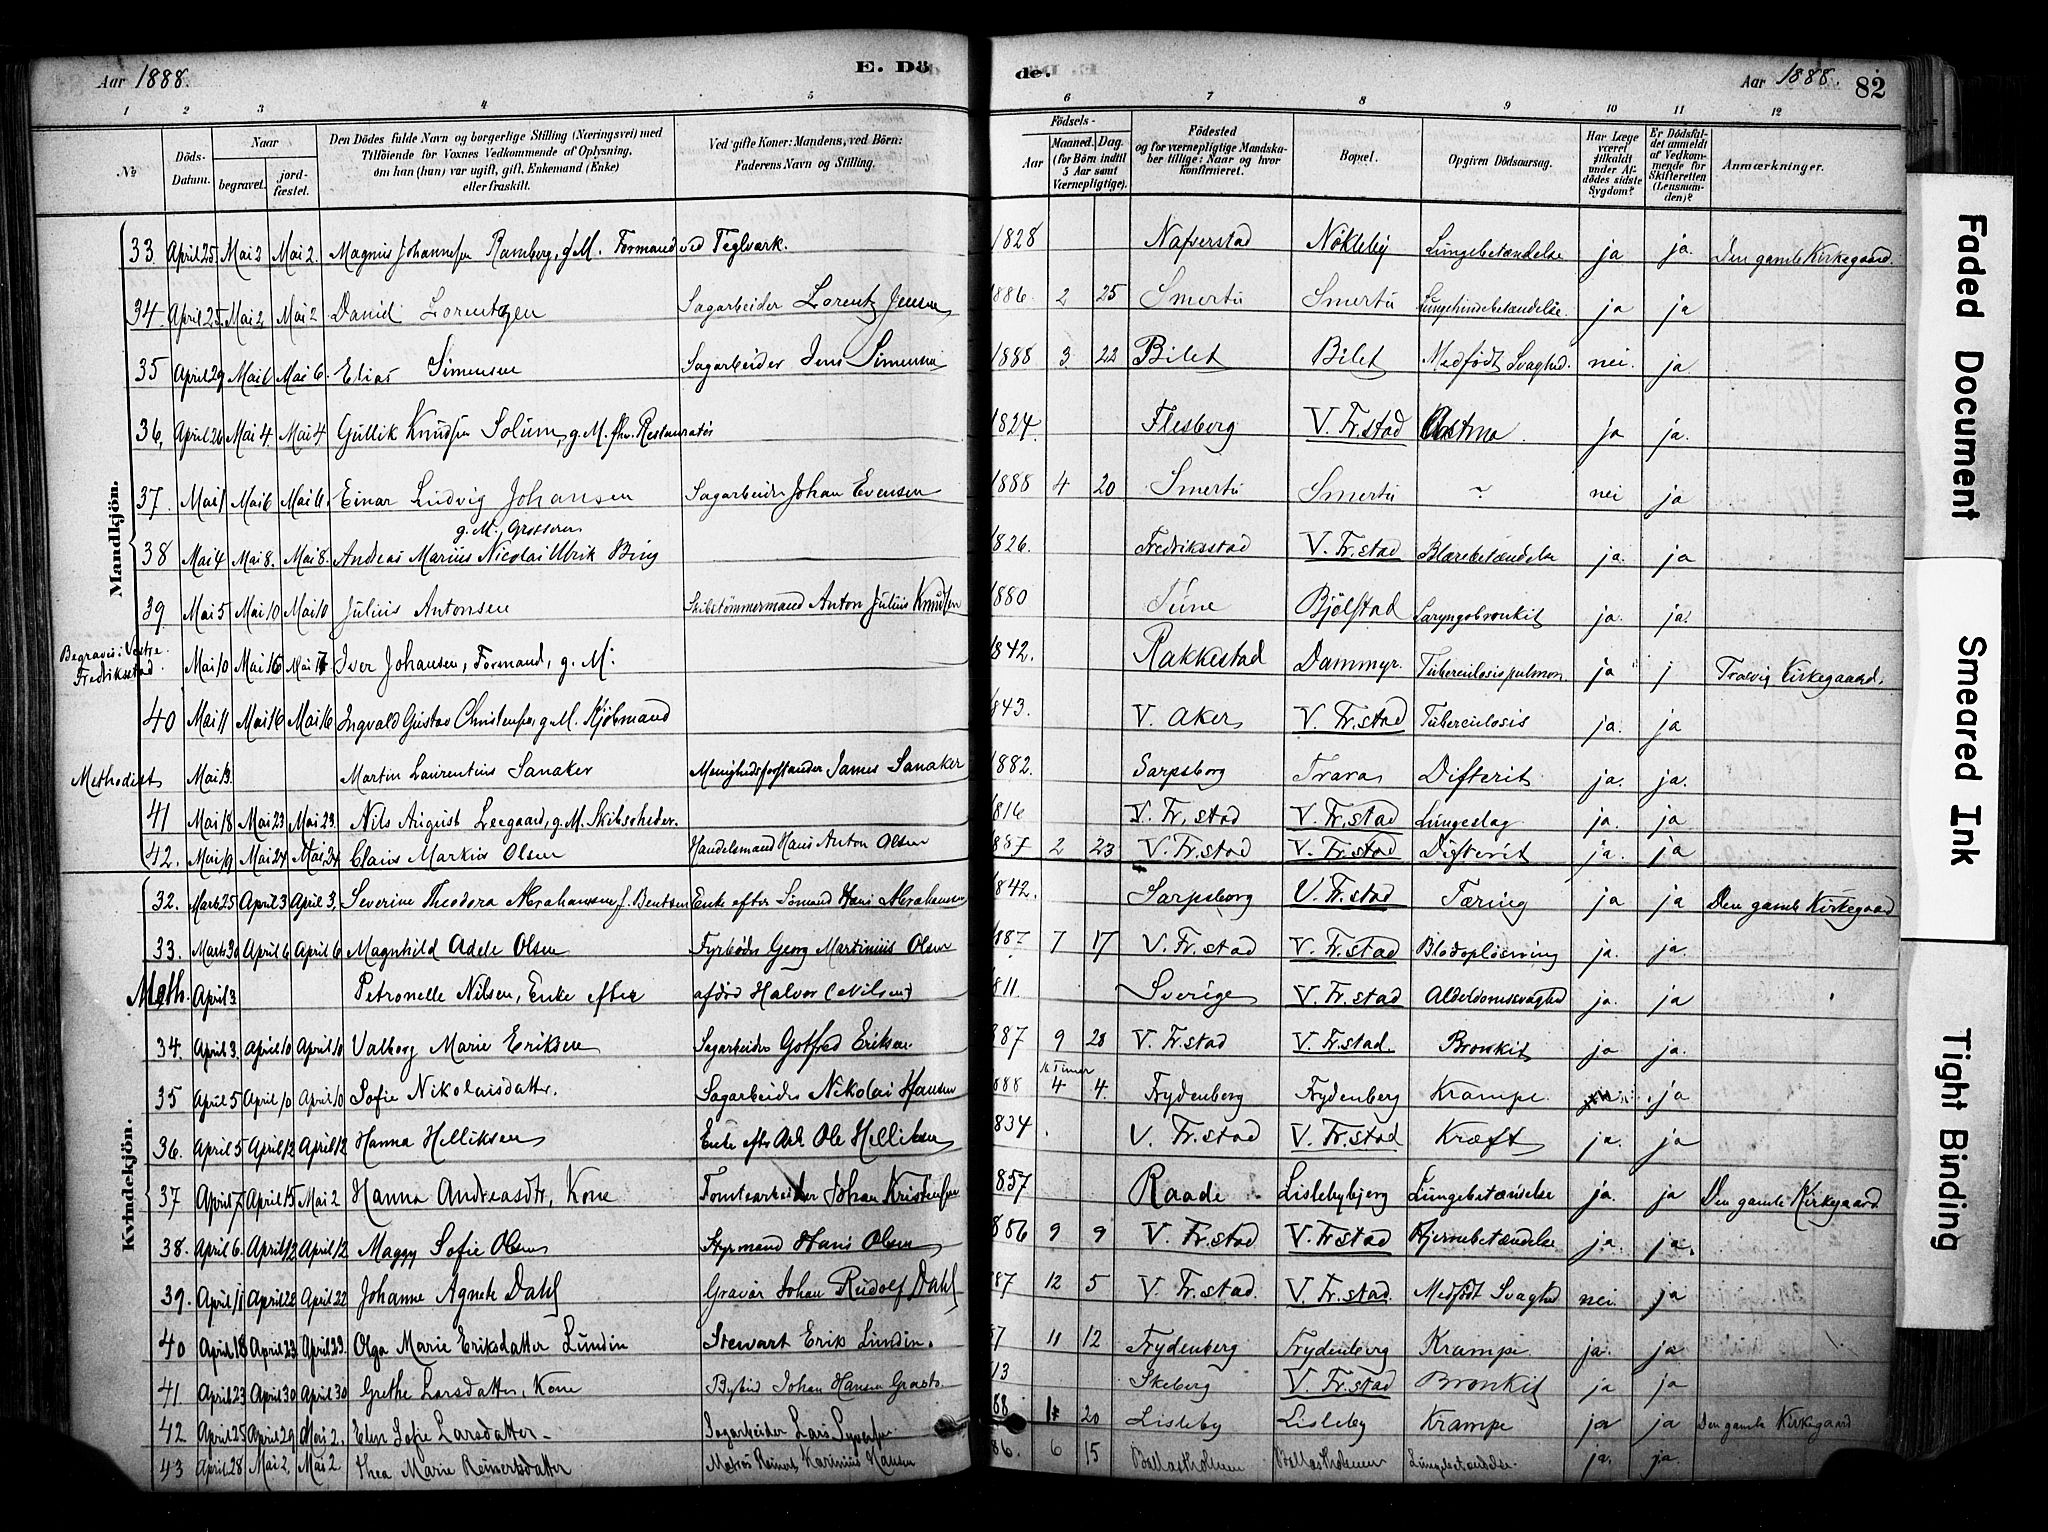 Aar 1888. E. Dö de. Aar 1888. 82
1 2 3 4 5 6 7 8 9 10 11 12
№ Döds-Datum. Naar begravet. jordfæstet. Den Dödes fulde Navn og borgerlige Stilling (Næringsvei) med Tilföiende for Voxnes Vedkommende af Oplysning, om han (hun) var ugift, gift, Enkemand (Enke) eller fraskilt. Ved gifte Koner: Mandens, ved Börn: Faderens Navn og Stilling. Födsels- Aar Maaned. Dag. (for Börn indtil 5 Aar samt Værnepligtige). Födested og for værnepligtige Mandskaber tillige: Naar og hvor konfirmeret. Bopæl. Opgiven Dödsaarsag. Har Læge været tilkaldt under Afdödes sidste Sygdom? Er Dödsfaldet anmeldt af Vedkommende for Skifteretten (Lensmanden)? Anmærkninger.
Mandkjön.
33. April 25 Mai 2 Mai 2. Magnus Johannesen Ramberg, g. M. Formand ved Teglværk. 1828 Nafverstad Nökleby Lungebetændelse ja ja. Den gamle Kirkegaard.
34. April 25. Mai 2 Mai 2 Daniel Lorentzen Sagarbeider Lorentz Jensen 1886. 2 25 Smertu Smertu Lungehindebetændelse. ja ja
35 April 29 Mai 6 Mai 6. Elias Simensen Sagarbeider Jens Simensen 1888 3. 22 Bilet Bilet Medfödt Svaghed. nei. ja
36, April 26 Mai 4. Mai 4 Gullik Knudsen Solum, g. M. fhv. Restauratör 1824. Flesberg V. Fr.stad Astma ja ja.
37. Mai 1 Mai 6 Mai 6. Einar Ludvig Johansen Sagarbeider Johan Evensen 1888 4 20 Smertu Smertu ~ nei ja
g. M., Grosserer
38 Mai 4 Mai 8. Mai 8. Andreas Marius Nicolai Ulrik Bing 1826. Fredriksstad V. Fr.stad Blærebetændelse ja. ja
39 Mai 5 Mai 10 Mai 10 Julius Antonsen Skibstömmermand Anton Julius Knudsen 1880 Tune Bjölstad Laryngobronkit ja. ja.
Begravet i Vestre Fredriksstad Mai 10 Mai 16 Mai 17 Iver Johansen, Formand, g. M. 1842. Rakkestad Dammyr. Tuberculosis pulmon. ja j Trosvig Kirkegaard.
40 Mai 11 Mai 16 Mai 16 Ingvald Gustav Christensen, g. M. Kjöbmand 1843. V. Aker V. Fr.stad Tuberculosis ja. ja
Methodist Mai 13. Martin Laurentius Sanaker Menighedsforstander James Sanaker 1882. Sarpsborg Trara Difterit ja. ja.
41 Mai 18 Mai 23 Mai 23. Nils August Leegaard, g. M. Skibsrheder. 1816 V. Fr.stad V. Fr.stad Lungeslag ja. ja
42. Mai 19 Mai 24 Mai 24 Claus Markus Olsen Handelsmand Hans Anton Olsen 1887 2 23 V. Fr.stad V. Fr.stad Difterit ja. ja
Kvindekjön.
32. Marts 25 April 3 April 3, Severine Theodora Abrahamsen f. Bentsen Enke efter Sömand Hans Abrahamsen 1842. Sarpsborg V. Fr.stad Tæring ja ja Den gamle Kirkegaard
33. Marts 30 April 6 April 6 Magnhild Adele Olsen Fyrböder Georg Martinius Olsen 887. 7 17 V. Fr.stad V. Fr.stad Blodoplösning ja. ja.
Meth. April 3 Petronelle Nilsen, Enke efter afdöd Halvor (Nilsen) 811. Sverige V. Fr.stad Alderdomssvaghed ja. ja
34. April 3. April 10 April 10 Valborg Marie Eriksen Sagarbeider Gotfred Eriksen 887 9 28 V. Fr.stad V. Fr.stad. Bronkit ja ja.
16 Timer
35 April 5 April 10 April 10 Sofie Nikolaisdatter. Sagarbeider Nikolai Hansen 888 4 4. Frydenberg Frydenberg Krampe. ja
36. April 5 April 12 April 12 Hanna Helliksen Enke efter Arb. Ole Helliksen 834 V. Fr.stad V. Fr.stad Kræft ja. ja
37 April 7 April 15 Mai 2 Hanna Andreasdtr, Kone Tomtearbeider Johan Kristensen 857 Raade Lislebybjerg Lungebetændelse ja. ja Den gamle Kirkegaard
38. April 6. April 12 April 12 Maggy Sofie Olsen Styrmand Hans Olsen 886 9 9 V. Fr.stad V. Fr.stad Hjernebetændelse ja. ja.
39. April 11 April 22 April 22 Johanne Agnete Dahl Gravör Johan Rudolf Dahl 87 12 5 V. Fr.stad. V. Fr.stad. Medfödt Svaghed nei. ja
40 April 18 April 23 April 23. Olga Marie Eriksdatter Lundin Stewart Erik Lundin. 7 11 12 Frydenberg Frydenberg Krampe ja. ja
41 April 23 April 30 April 30 Grethe Larsdatter, Kone Bybud Johan Hansen 13 Skeberg V. Fr.stad Bronkit ja ja
42 April 25 April 29 Mai 2, Elen Sofie Larsdatter Sagarbeider Lars Syversen 88 1 20 Lisleby Lisleby Krampe ja ja Den gamle Kirkegaard
43 April 28 Mai 2 Mai 2 Thea Marie Reinertsdatter Matros Reinert Karinius Hansen 86. 6 15 Ballastholmen Ballastholmen Lungebetændelse. ja. ja.
Faded Document
Smeared Ink
Tight Binding